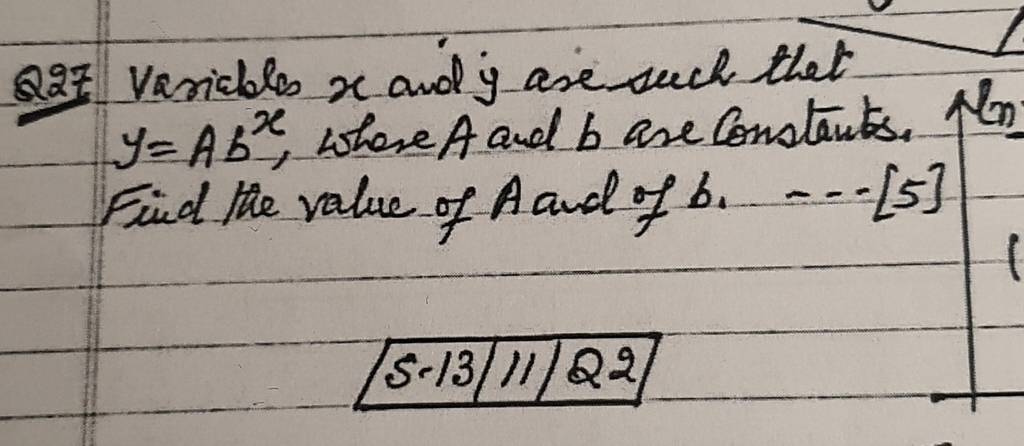 Q27 Variables x and y are such that
y = Ab^x, where A and b are Constants.
Find the value of A and of b. ----[5]
ln
S-13/11/Q2